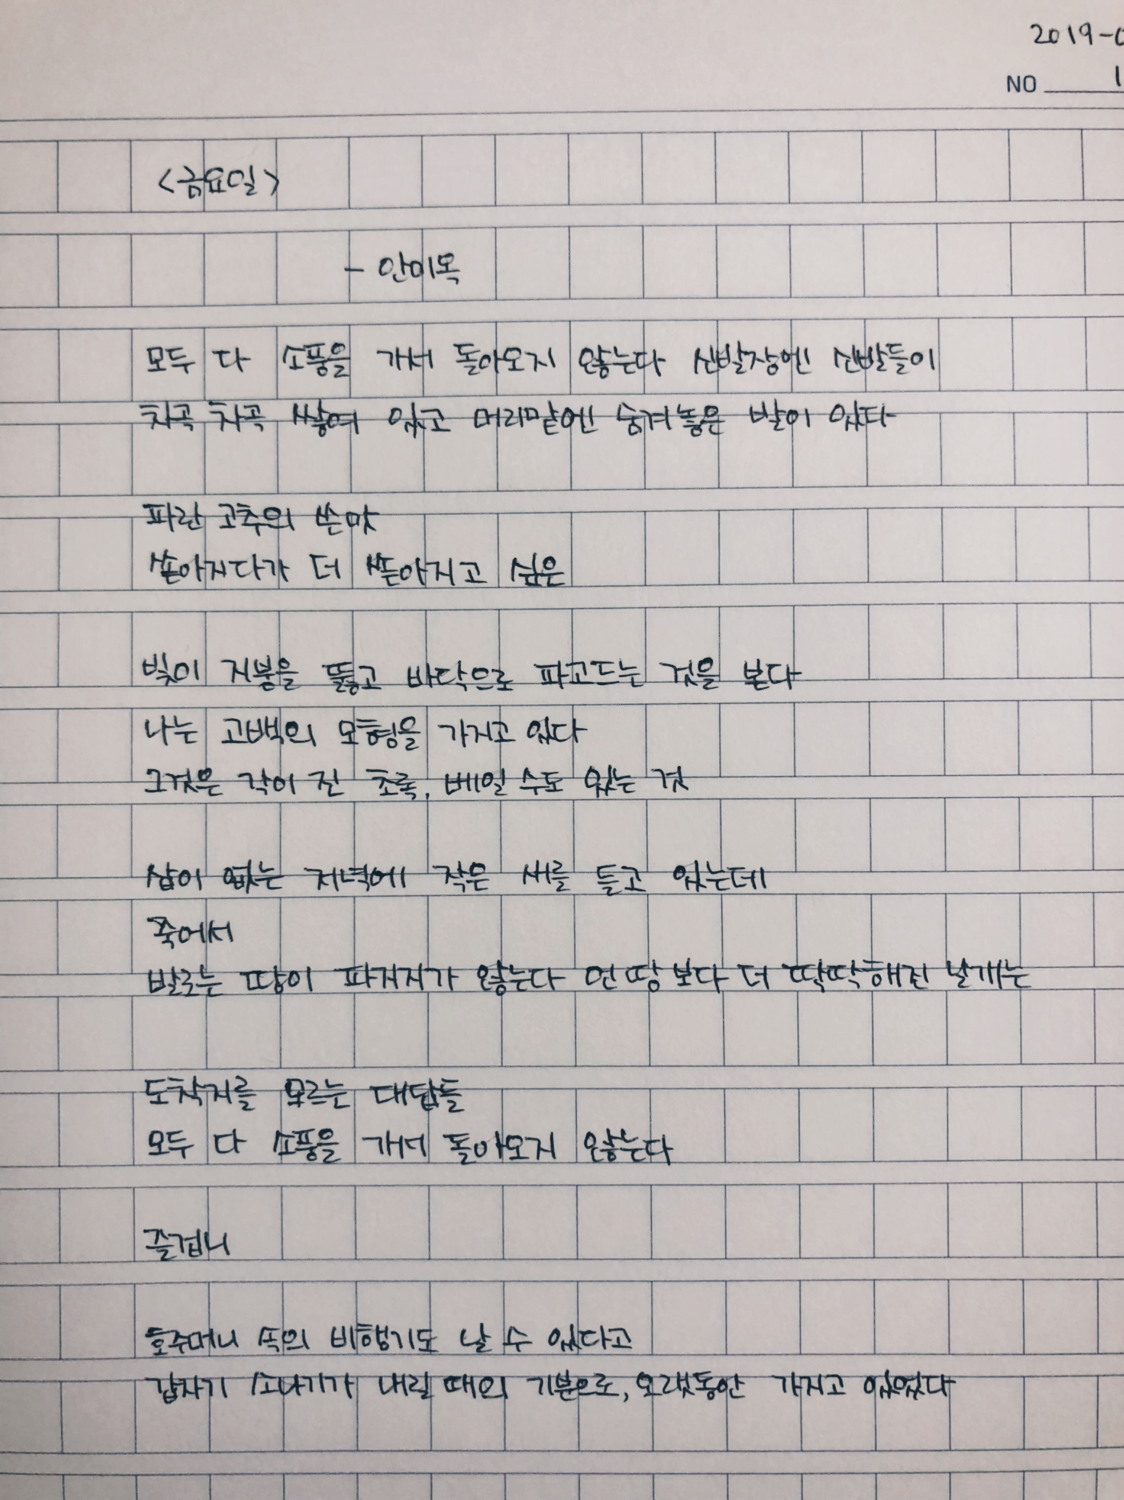 2019-0
NO 1
<금요일>
- 안미옥
모두 다 소풍을 가서 돌아오지 않는다 신발장엔 신발들이
차곡 차곡 쌓여 있고 머리맡엔 숨겨놓은 발이 있다
파란 고추의 쓴맛
쏟아지다가 더 쏟아지고 싶은
빛이 지붕을 뚫고 바닥으로 파고드는 것을 본다
나는 고백의 모형을 가지고 있다
그것은 각이 진 초록, 베일 수도 있는 것
삽이 없는 저녁에 작은 새를 들고 있는데
죽어서
발로는 땅이 파지지가 않는다 언 땅 보다 더 딱딱해진 날개는
도착지를 모르는 대답들
모두 다 소풍을 가서 돌아오지 않는다
즐겁니
호주머니 속의 비행기도 날 수 있다고
갑자기 소나기가 내릴 때의 기분으로, 오랫동안 가지고 있었다